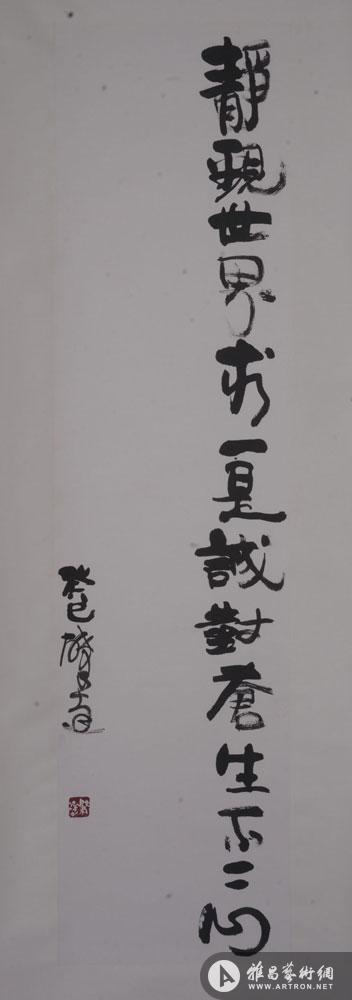 靜觀世界求一是誠對蒼生不二心
癸巳
雅昌藝術網
WWW.ARTRON.NET